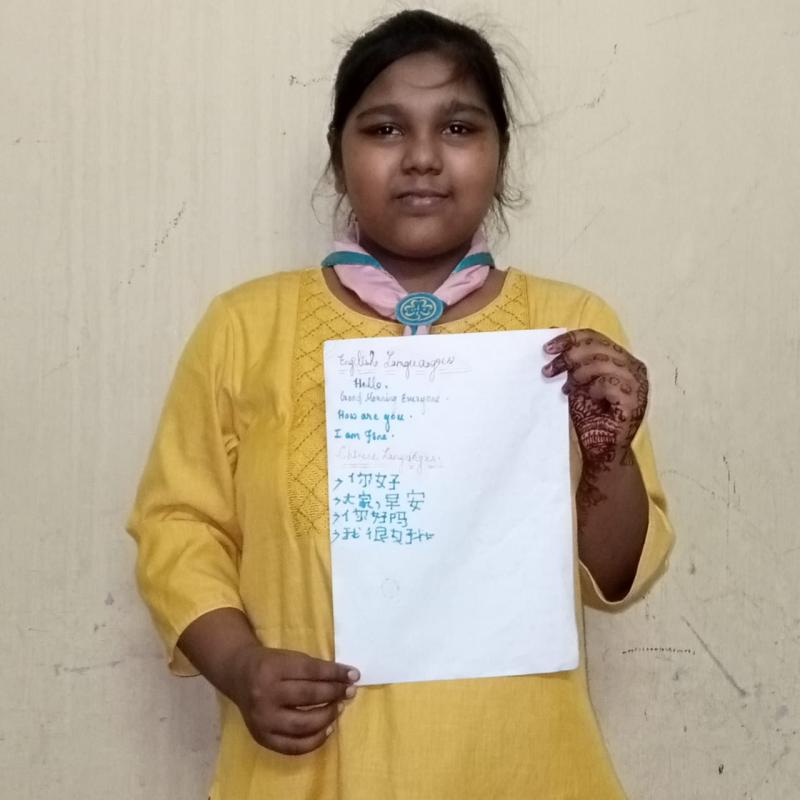 English Languages
Hello.
Good Morning Everyone.
How are you.
I am fine.
Chinese Languages.
→你好
→大家,早安
→你好吗
→我很好